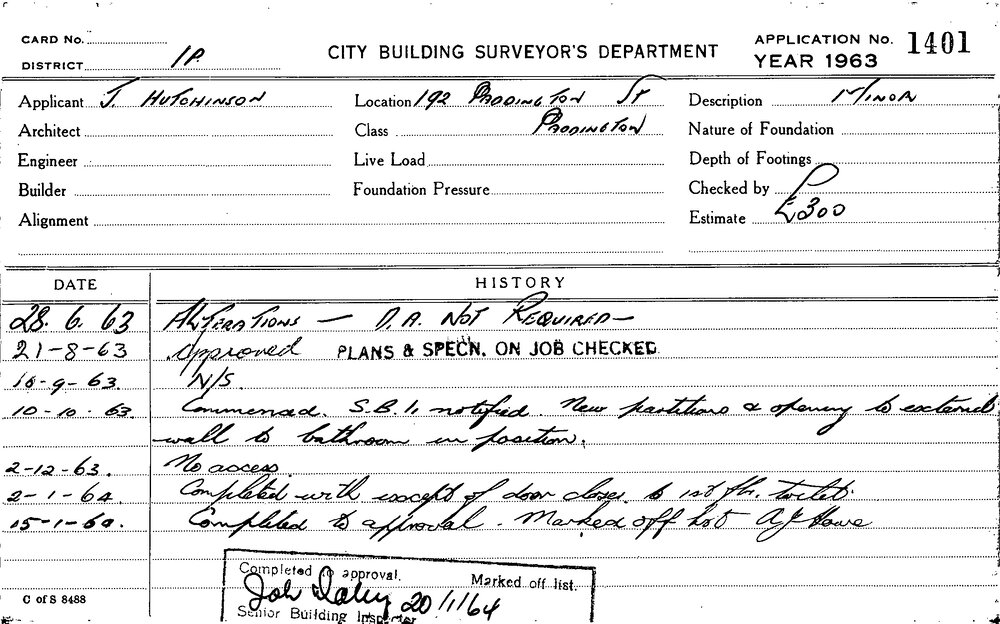 CARD No.
DISTRICT 1P.
CITY BUILDING SURVEYOR'S DEPARTMENT
APPLICATION No. 1401
YEAR 1963
Applicant J. HUTCHINSON
Location 192 PADDINGTON ST
Description MINOR
Architect
Class PADDINGTON
Nature of Foundation
Engineer
Live Load
Depth of Footings
Builder
Foundation Pressure
Checked by
Alignment
Estimate £300
DATE HISTORY
28. 6. 63 ALTERATIONS — D.A. NOT REQUIRED —
21-8-63 Approved PLANS & SPECN. ON JOB CHECKED
16-9-63. N/S.
10-10-63 Commenced. S.B.I. notified. New partitions & opening to external
wall to bathroom in position.
2-12-63. No access.
2-1-64 Completed with except of door closer to 1st flr. toilet.
15-1-64. Completed to approval. Marked off list A J Howe
Completed to approval. Marked off list.
20/1/64
Senior Building Inspector
C of S 8488